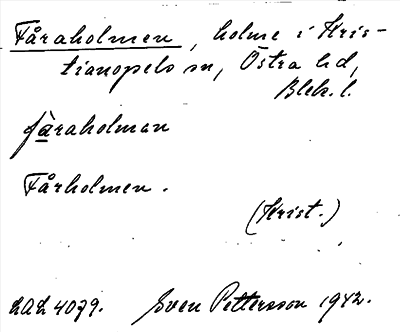 Fåraholmen, holme i Kris-
tianopels sn, Östra hd,
Blek. l.
fåraholman
Fårholmen.
(Krist.)
LAL 4079. Sven Pettersson 1942.